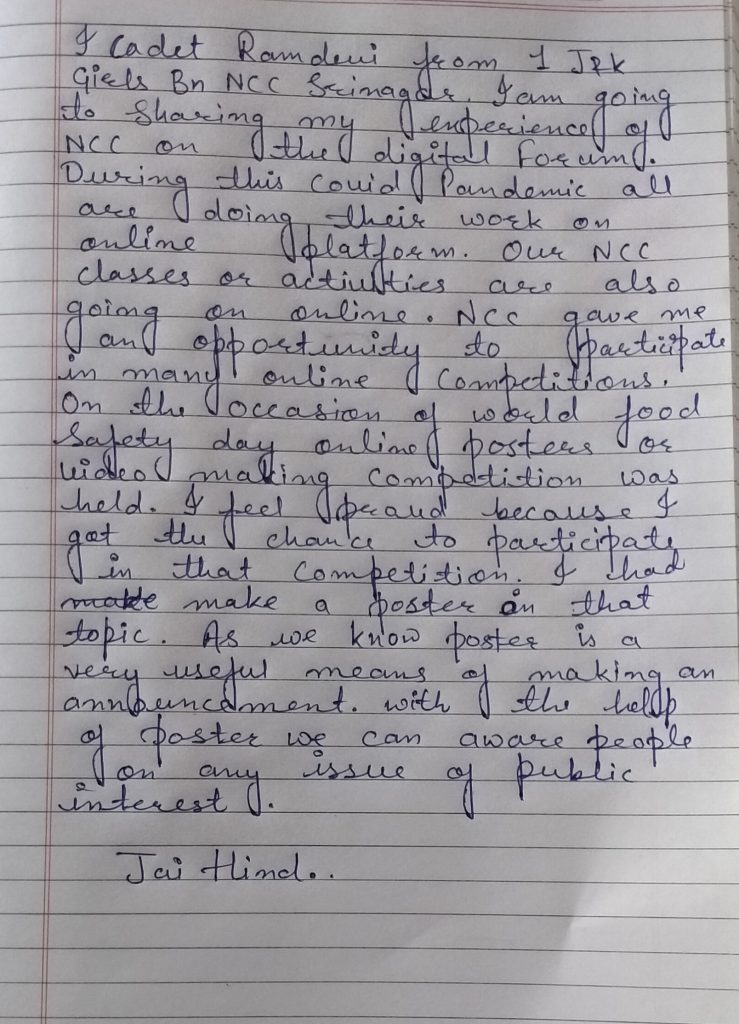 I Cadet Ramdevi from 1 J&k
Girls Bn NCC Srinagar. I am going
to Sharing my experience of
NCC on the digital Forum.
During this Covid Pandemic all
are doing their work on
online platform. Our NCC
classes or activities are also
going on online. NCC gave me
an opportunity to participate
in many online Competitions.
On the occasion of world food
Safety day online posters or
video making competition was
held. I feel praud because I
got the chance to participate
in that Competition. I had
make make a poster on that
topic. As we know poster is a
very useful means of making an
announcement. with the help
of poster we can aware people
on any issue of public
interest.
Jai Hind..